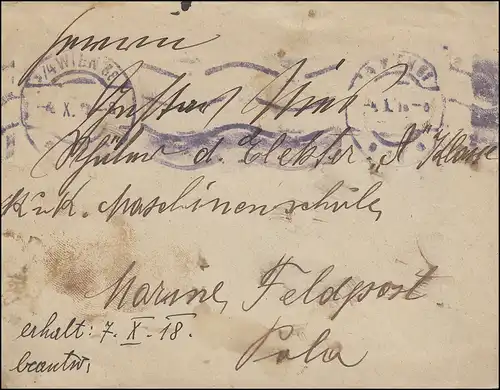 Herrn
Gustav
Schüler d. Elektr. "A" Klasse
K.u.K. Maschinenschule,
Marine Feldpost
Pola
erhalt: 7. X. 18.
beantw.
WIEN
X.
4. X. 18